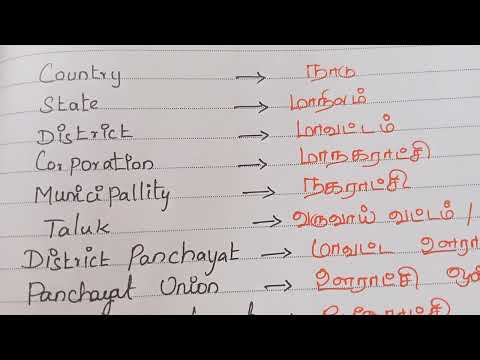 Country → நாடு
State → மாநிலம்
District → மாவட்டம்
Corporation → மாநகராட்சி
Municipallity → நகராட்சி
Taluk → வருவாய் வட்டம் /
District Panchayat → மாவட்ட ஊரா
Panchayat Union → ஊராட்சி ஒன்